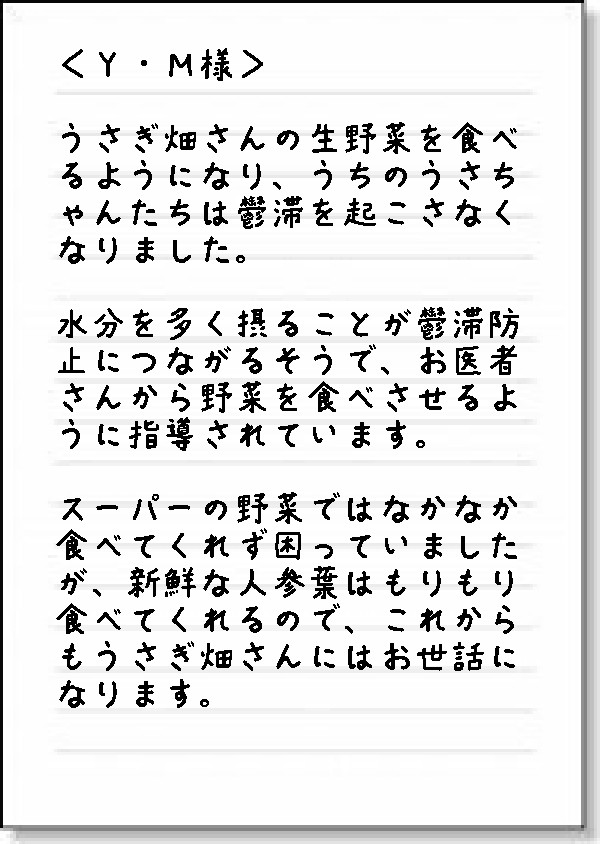 ＜Ｙ・Ｍ様＞
うさぎ畑さんの生野菜を食べ
るようになり、うちのうさち
ゃんたちは鬱滞を起こさなく
なりました。
水分を多く摂ることが鬱滞防
止につながるそうで、お医者
さんから野菜を食べさせるよ
うに指導されています。
スーパーの野菜ではなかなか
食べてくれず困っていました
が、新鮮な人参葉はもりもり
食べてくれるので、これから
もうさぎ畑さんにはお世話に
なります。